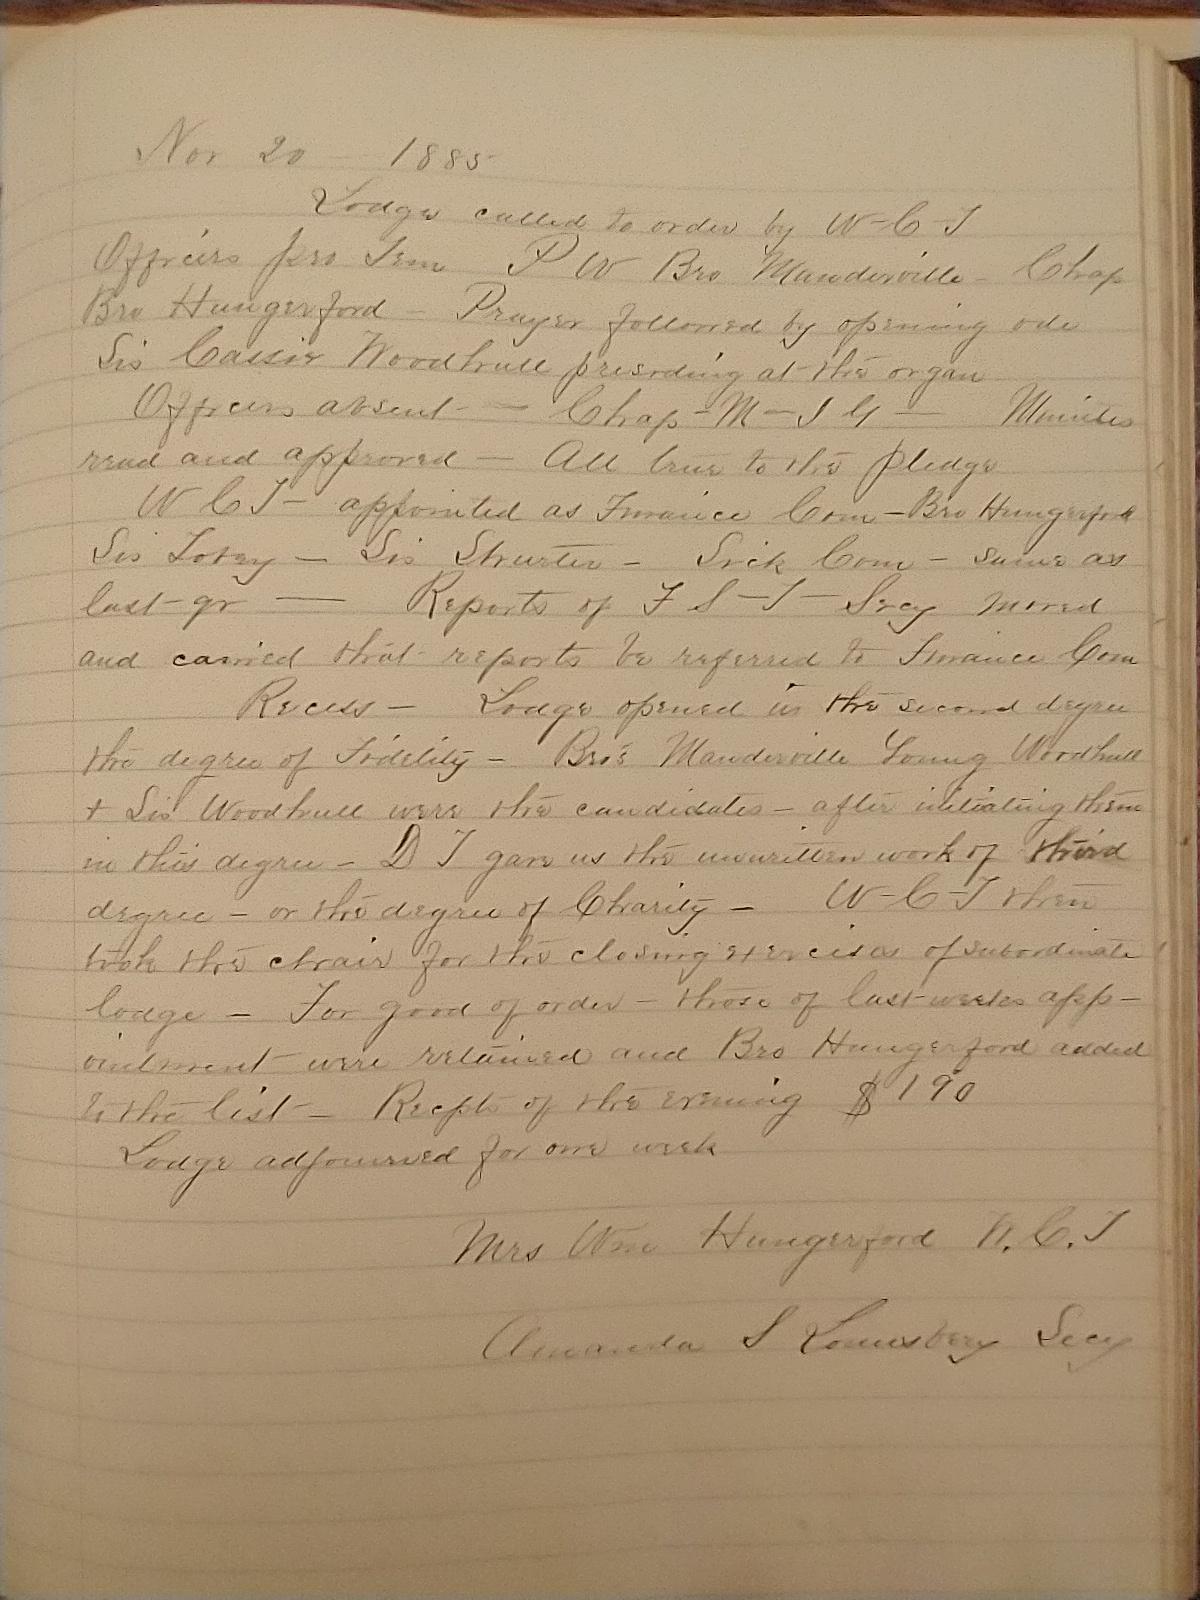 Nov 20 — 1885
Lodge called to order by W-C-T
Officers pro Tem P W Bro Manderville - Chap
Bro Hungerford - Prayer followed by opening ode
Sis Cassie Woodhull presiding at the organ
Officers absent - — Chap - M - I G — Minutes
read and approved — All true to the pledge
W C T - appointed as Finance Com - Bro Hungerford
Sis — Sis - Sick Com - same as
last qr — Reports of F S - T - Secy moved
and carried that reports be referred to Finance Com
Recess - Lodge opened in the second degree
the degree of Fidelity - Bro's Manderville Young Woodhull
+ Sis Woodhull were the candidates - after initiating them
in this degree - D T gave us the unwritten work of third
degree - or the degree of Charity - W-C-T then
took the chair for the closing exercises of subordinate
lodge - For good of order - those of last weeks app-
ointment were retained and Bro Hungerford added
to the list - Recpts of the evening $ 190
Lodge adjourned for one week
Mrs Wm Hungerford W. C. T
Amanda S Lounsbery Secy